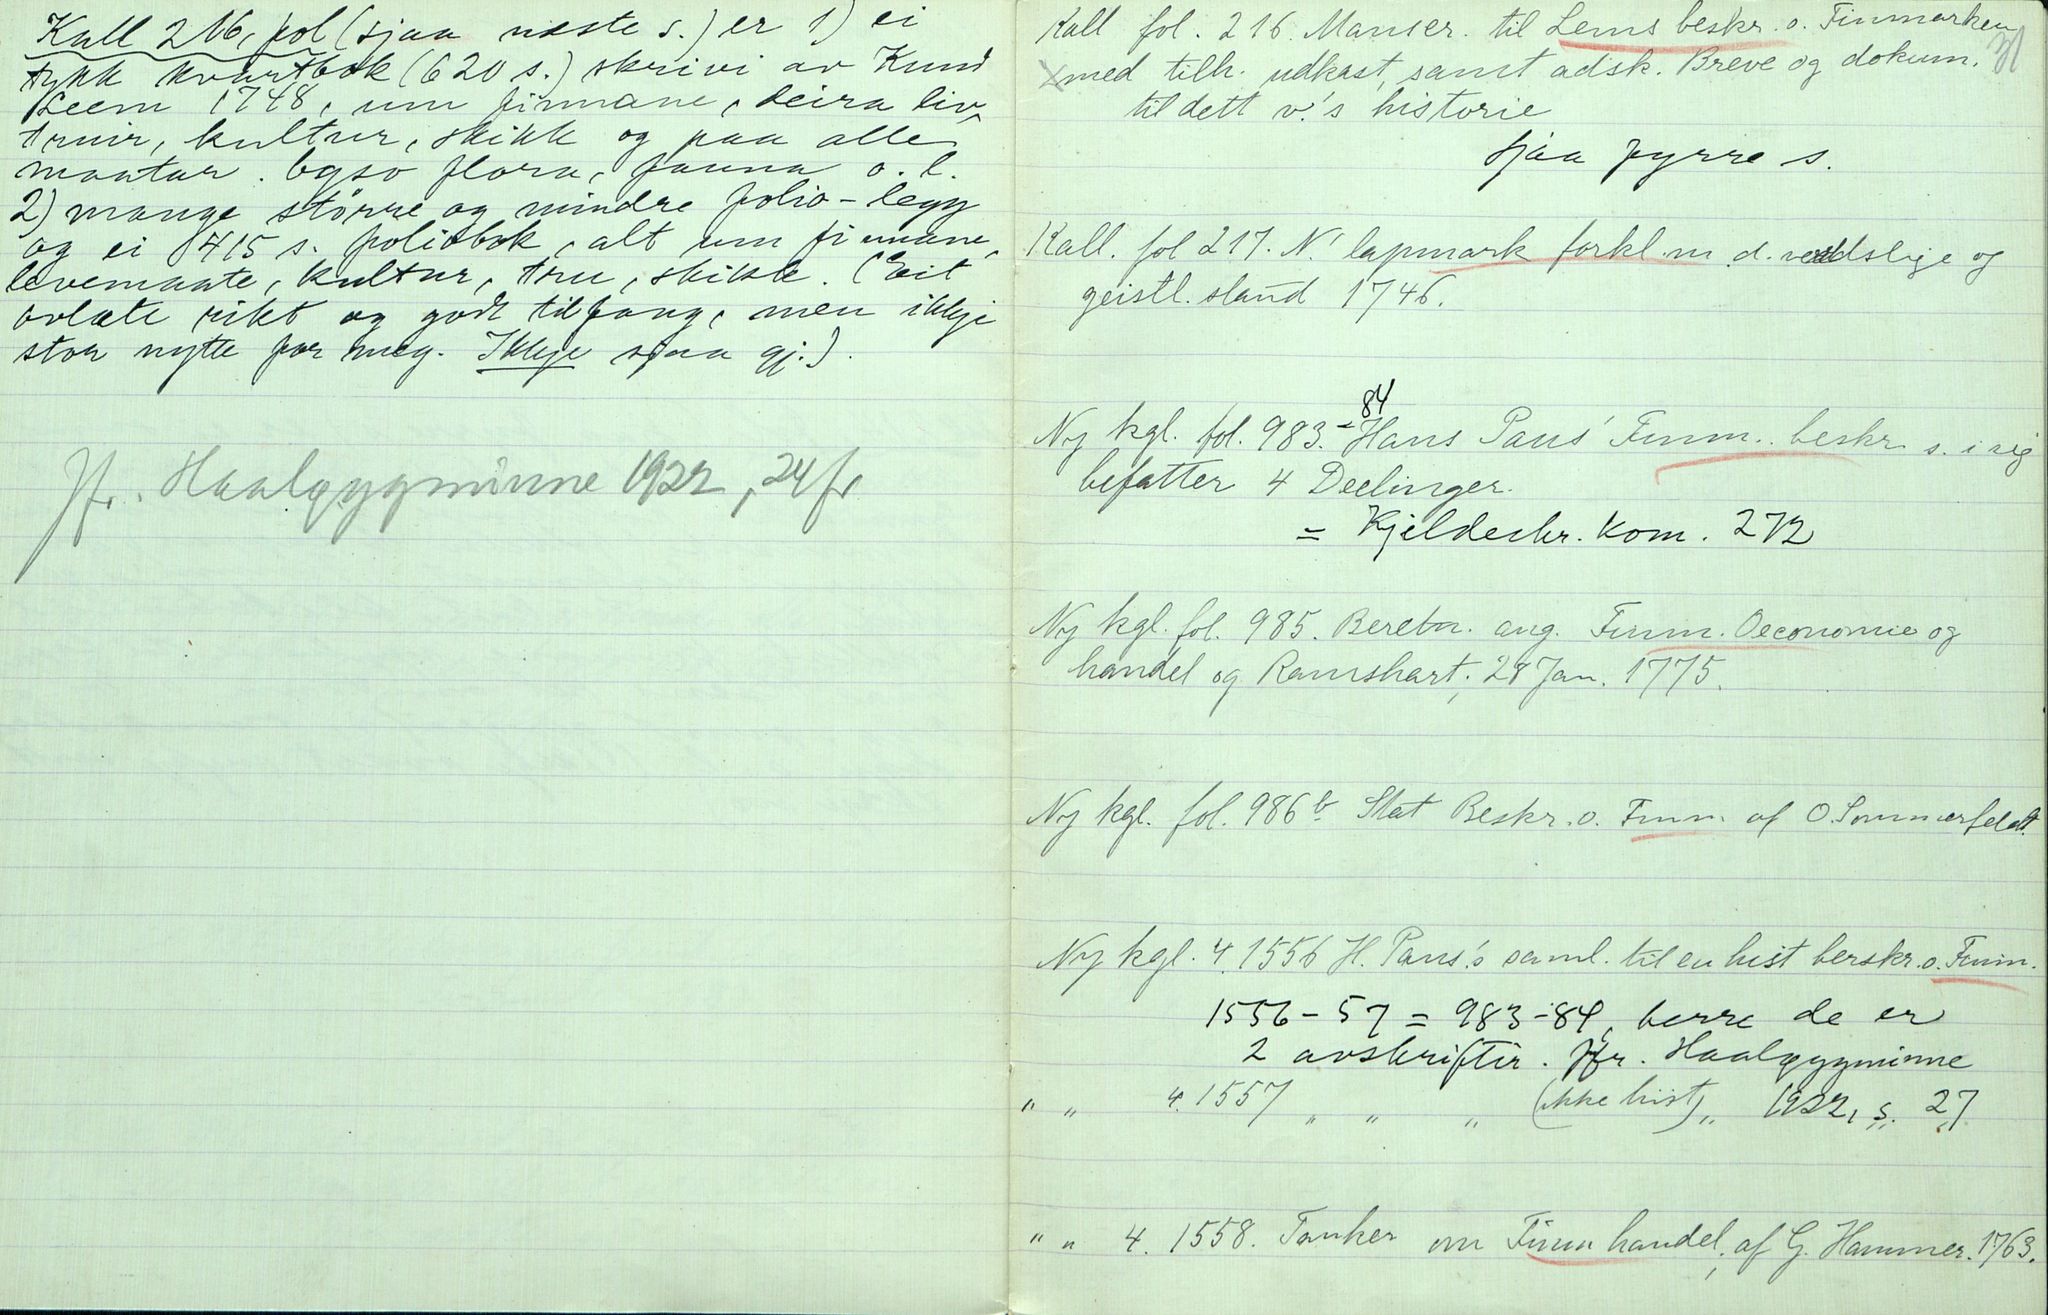 Kall 216, fol (sjaa næste s.) er 1) ei
tykk kvartbok (620 s.) skrivi av Knud
Leem 1748, um finnane, deira liv,
truir, kultur, skikk og paa alle
maatar. Ogso flora, fauna o. l.
2) mange större og mindre folio-legg
og ei 415 s. foliobok, alt um finnane,
levemaate, kultur, tru, skikk. (Eit
ovlete rikt og godt tilfang, men ikkje
stor nytte for meg. Ikkje sjaa gj.)
Jfr. Haaløygminne 1922, 24 fr
Kall fol. 216. Manscr. til Lems beskr. o. Finmarken
med tilh. udkast, samt adsk. Breve og dokum.
til dett v.'s historie
sjaa fyrre s.
Kall. fol 217. N. lapmark forkl. m. d. verdslige og
geistl. stand 1746.
Ny kgl. fol. 983.-84 Hans Paus' Finm. beskr s. i sig
befatter 4 Deelinger.
= Kjeldeskr. kom. 272
Ny kgl. fol. 985. Beretn. ang. Finm. Oeconomie og
handel og Ramshart; 28 Jan. 1775.
Ny kgl. fol. 986 b Stat Beskr. o. Finm. af O. Sommerfeldt.
Ny kgl. 4. 1556 H. Paus's saml. til en hist berskr. o. Finm.
1556-57 = 983-84, berre de er
2 avskriftir. Jfr. Haaløygminne
" " 4. 1557 " " " (ikke hist) " 1922, s. 27
" " 4. 1558. Tanker om Finm handel, af G. Hammer. 1763.